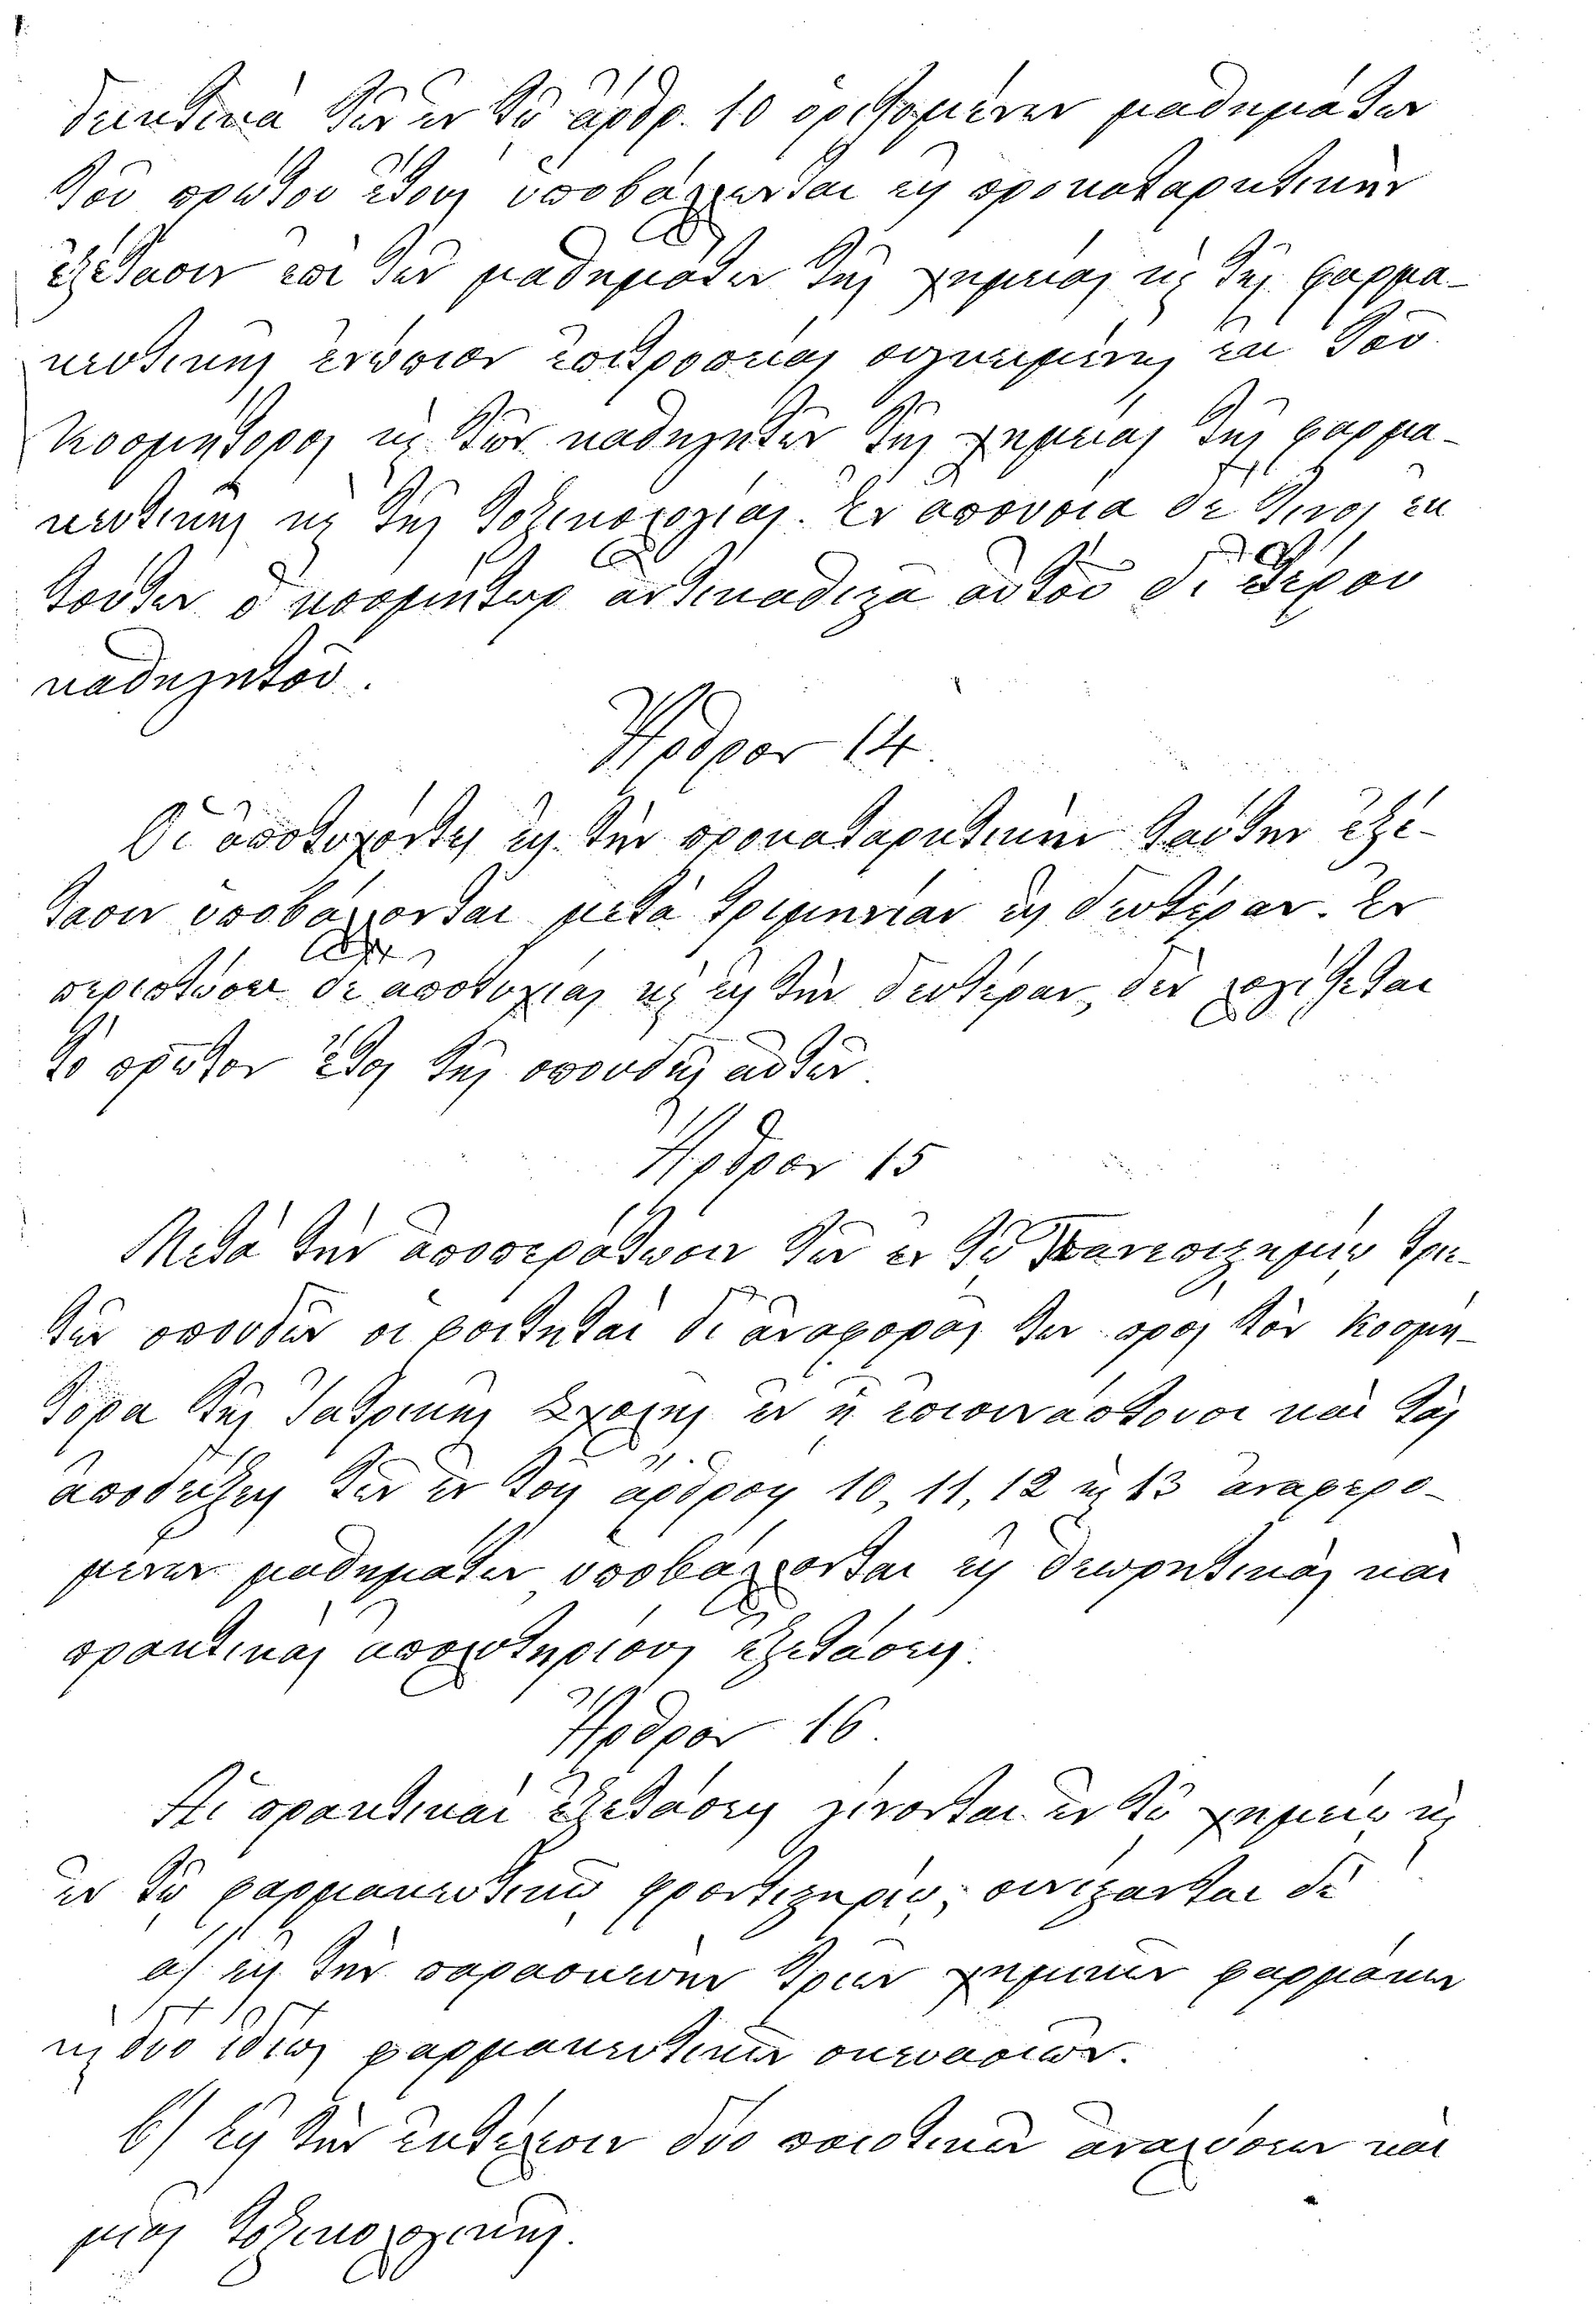 δεικτικὰ τῶν ἐν τῷ ἄρθρ. 10 ὁριζομένων μαθημάτων
τοῦ πρώτου ἔτους ὑποβάλλονται εἰς προκαταρκτικὴν
ἐξέτασιν ἐπὶ τῶν μαθημάτων τῆς χημείας κ τῆς φαρμα-
κευτικῆς ἐνώπιον ἐπιτροπείας συγκειμένης ἐκ τοῦ
Κοσμήτορος κ τῶν καθηγητῶν τῆς χημείας τῆς φαρμα-
κευτικῆς κ τῆς τοξικολογίας. Ἐν ἀπουσίᾳ δέ τινος ἐκ
τούτων ὁ κοσμήτωρ ἀντικαθιστᾷ αὐτὸν δι' ἑτέρου
καθηγητοῦ.
Ἄρθρον 14
Οἱ ἀποτυχόντες εἰς τὴν προκαταρκτικὴν ταύτην ἐξέ-
τασιν ὑποβάλλονται μετὰ τριμηνίαν εἰς δευτέραν. Ἐν
περιπτώσει δὲ ἀποτυχίας κ εἰς τὴν δευτέραν, δὲν λογίζεται
τὸ πρῶτον ἔτος τῆς σπουδῆς αὐτῶν.
Ἄρθρον 15
Μετὰ τὴν ἀποπεράτωσιν τῶν ἐν τῷ Πανεπιστημίῳ τρι-
τῶν σπουδῶν οἱ φοιτηταὶ δι' ἀναφορᾶς των πρὸς τὸν Κοσμή-
τορα τῆς Ἰατρικῆς Σχολῆς ἐν ᾗ ἐπισυνάπτουσι καὶ τὰς
ἀποδείξεις τῶν ἐν τοῖς ἄρθροις 10, 11, 12 κ 13 ἀναφερο-
μένων μαθημάτων ὑποβάλλονται εἰς θεωρητικὰς καὶ
πρακτικὰς ἀπολυτηρίους ἐξετάσεις.
Ἄρθρον 16
Αἱ πρακτικαὶ ἐξετάσεις γίνονται ἐν τῷ χημείῳ κ
ἐν τῷ φαρμακευτικῷ φροντιστηρίῳ, συνίστανται δὲ
α) εἰς τὴν παρασκευὴν τριῶν χημικῶν φαρμάκων
κ δύο ἰδίως φαρμακευτικῶν σκευασιῶν.
β) εἰς τὴν ἐκτέλεσιν δύο ποιοτικῶν ἀναλύσεων καὶ
μιᾶς τοξικολογικῆς.